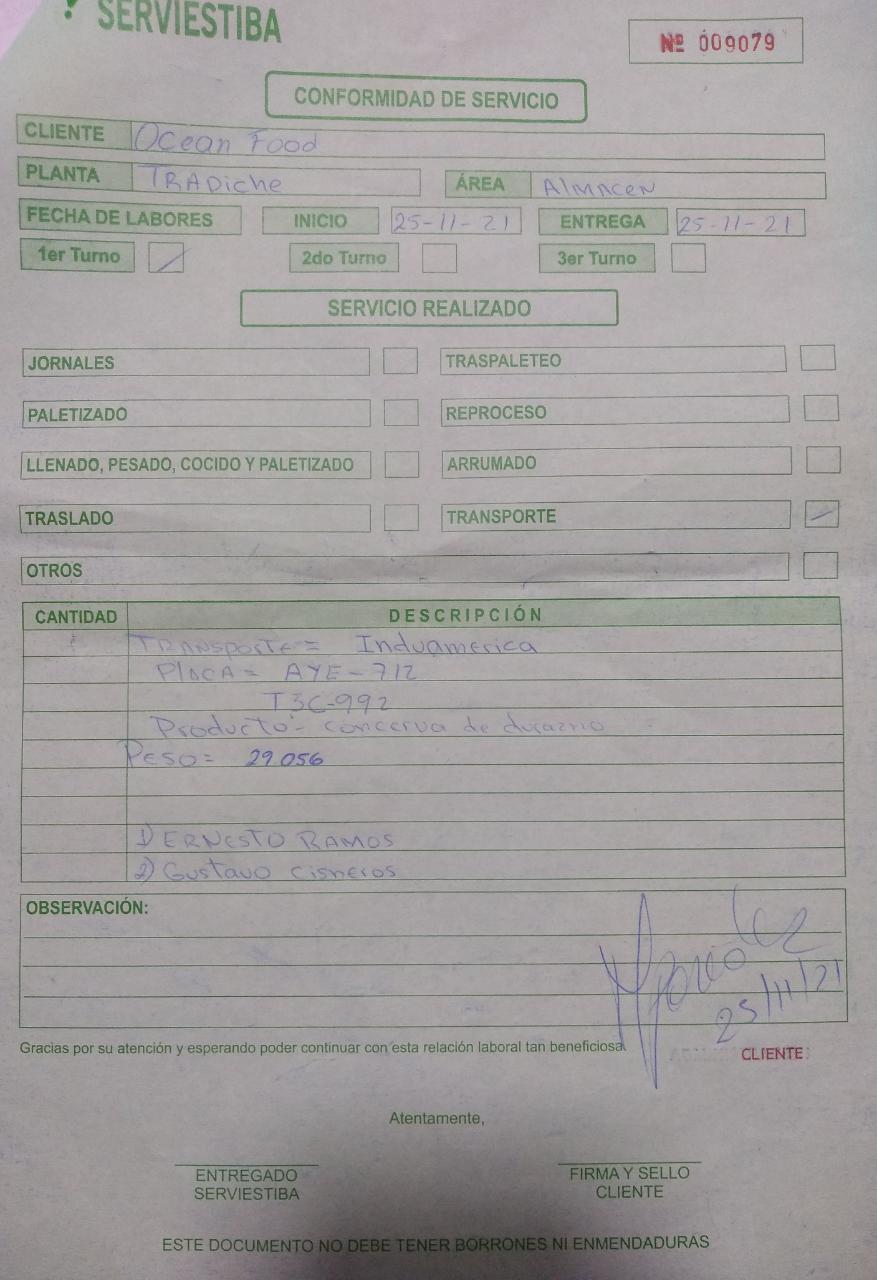 SERVIESTIBA
Nº 009079
CONFORMIDAD DE SERVICIO
CLIENTE Ocean Food
PLANTA TRAPiche ÁREA AlMACEN
FECHA DE LABORES INICIO 25-11-21 ENTREGA 25-11-21
1er Turno 2do Turno 3er Turno
SERVICIO REALIZADO
JORNALES TRASPALETEO
PALETIZADO REPROCESO
LLENADO, PESADO, COCIDO Y PALETIZADO ARRUMADO
TRASLADO TRANSPORTE
OTROS
CANTIDAD DESCRIPCIÓN
TRANSPORTE = Induamerica
PlACA = AYE-712
T3C-992
Producto - concerva de durazno
PESO = 29.056
1) ERNESTO RAMOS
2) Gustavo Cisneros
OBSERVACIÓN:
25/11/21
Gracias por su atención y esperando poder continuar con esta relación laboral tan beneficiosa
CLIENTE:
Atentamente,
ENTREGADO SERVIESTIBA
FIRMA Y SELLO CLIENTE
ESTE DOCUMENTO NO DEBE TENER BORRONES NI ENMENDADURAS